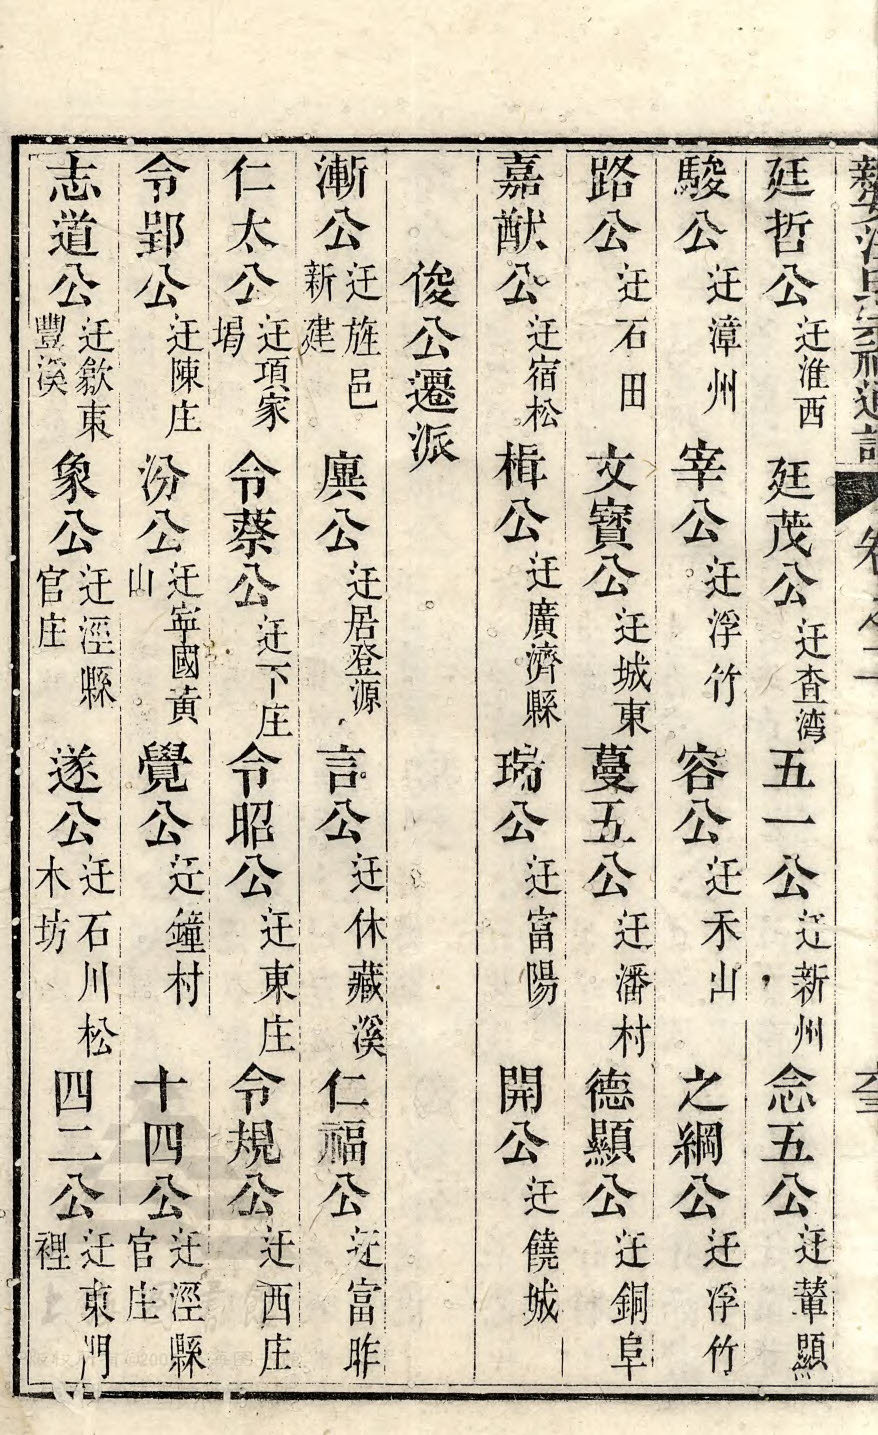 新安汪氏宗祠通譜 卷之二
廷哲公 迁淮西 廷茂公 迁査湾 五一公 迁新州 念五公 迁葷顯
駿公 迁漳州 宰公 迁浮竹 容公 迁禾山 之綱公 迁浮竹
路公 迁石田 文寳公 迁城東 蔓五公 迁潘村 德顯公 迁銅阜
嘉猷公 迁宿松 楫公 迁廣濟縣 瑞公 迁富陽 開公 迁饒城
俊公遷派
漸公 迁旌邑新建 廙公 迁居登源 言公 迁休藏溪 仁福公 迁富昨
仁太公 迁項家堨 令蔡公 迁下庄 令昭公 迁東庄 令規公 迁西庄
令郢公 迁陳庄 汾公 迁寧國黄山 覺公 迁鐘村 十四公 迁涇縣官庄
志道公 迁歙東豐溪 象公 迁涇縣官庄 遂公 迁石川松木坊 四二公 迁東門裡